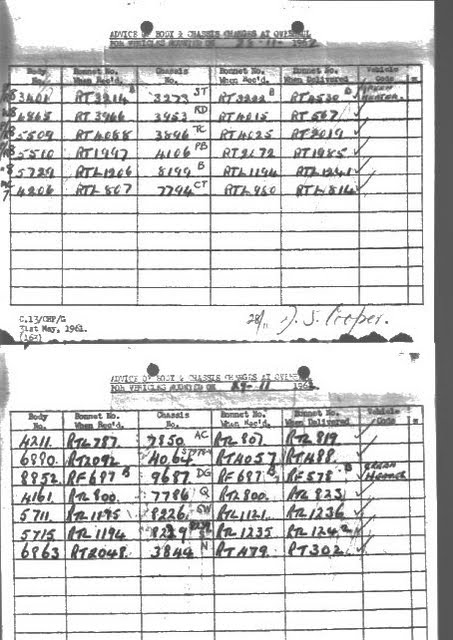 ADVICE OF BODY & CHASSIS CHANGES AT OVERHAUL
FOR VEHICLES MOUNTED ON 28-11- 1962
Body No. Bonnet No. When Rec'd. Chassis No. Bonnet No. When Rec'd. Bonnet No. When Delivered Vehicle Code
3401 RT3214 B 3273 ST RT3222 B RT4530 B GREEN HEATER ✓
4865 RT3966 3953 RD RT4015 RT587 ✓
5509 RT4088 3896 TC RT4025 RT2019 ✓
5510 RT1997 4106 PB RT2172 RT1985 ✓
5729 RTL1206 8199 B RTL1194 RTL1241 ✓
4206 RTL807 7794 CT RTL814 ✓
C.13/CHP/G
31st May, 1961.
(162)
28/11
ADVICE OF BODY & CHASSIS CHANGES AT OVERHAUL
FOR VEHICLES MOUNTED ON 29-11 1962
Body No. Bonnet No. When Rec'd. Chassis No. Bonnet No. When Rec'd. Bonnet No. When Delivered Vehicle Code
4211 RTL787 7850 AC RTL801 RTL819 ✓
RT2092 4064 RT4057 RT488 ✓
8852 RF697 B 9687 DG RF697 B RF578 B GREEN HEATER ✓
4161 RTL800 7786 Q RTL800 RTL823 ✓
5711 RTL1195 8226 SW RTL1121 RTL1236 ✓
5715 RTL1194 RTL1235 RTL1242 ✓
6863 RT2048 3844 N RT479 RT302 ✓